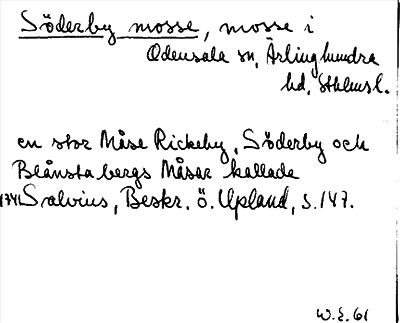 Söderby mosse, mosse i
Odensala sn, Ärlinghundra
hd, Sthlmsl.
en stor Måse Rickeby, Söderby och
Blånsta bergs Måsar kallade
1741 Salvius, Beskr. ö. Upland, s. 147.
W.E. 61